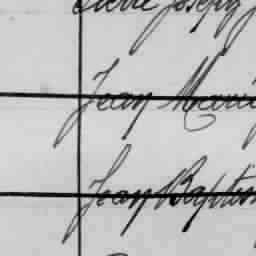 Joseph
Jean Marie
Jean Baptis